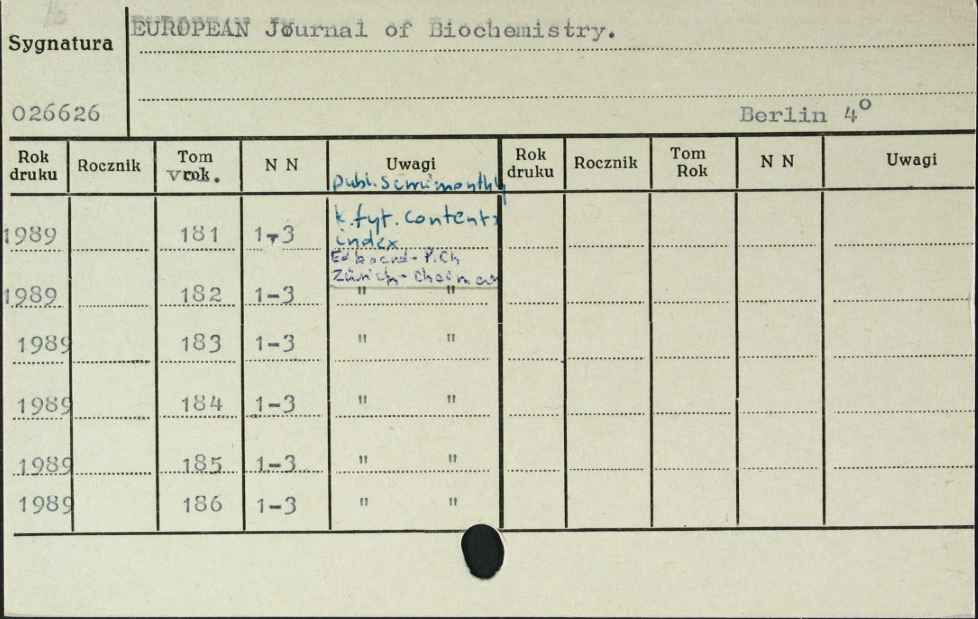 EUROPEAN Journal of Biochemistry.
Sygnatura
026626
Berlin 4°
Rok druku Rocznik Tom rok. N N Uwagi Rok druku Rocznik Tom Rok N N Uwagi
publ. semimonthly
k. tyt. contents
1989 181 1-3 index
Ed board - P.Ch
Zürich - Chairman
1989 182 1-3 " "
1989 183 1-3 " "
1989 184 1-3 " "
1989 185 1-3 " "
1989 186 1-3 " "